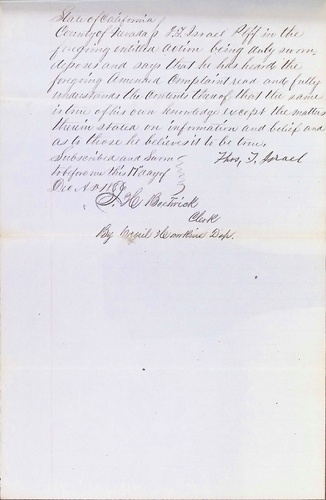 State of California
County of Nevada } T. T. Israel Plff in the
foregoing entitled action being duly sworn
deposes and says that he has heard the
foregoing amended Complaint read and fully
understands the Contents thereof that the same
is true of his own knowledge except the matters
therein stated on information and belief and
as to those he believes it to be true.
Subscribed and Sworn Thos, T, Israel
to before me this 17th day of
Dec A.D.
Bostwick
Clerk
By Hawkins Dep.